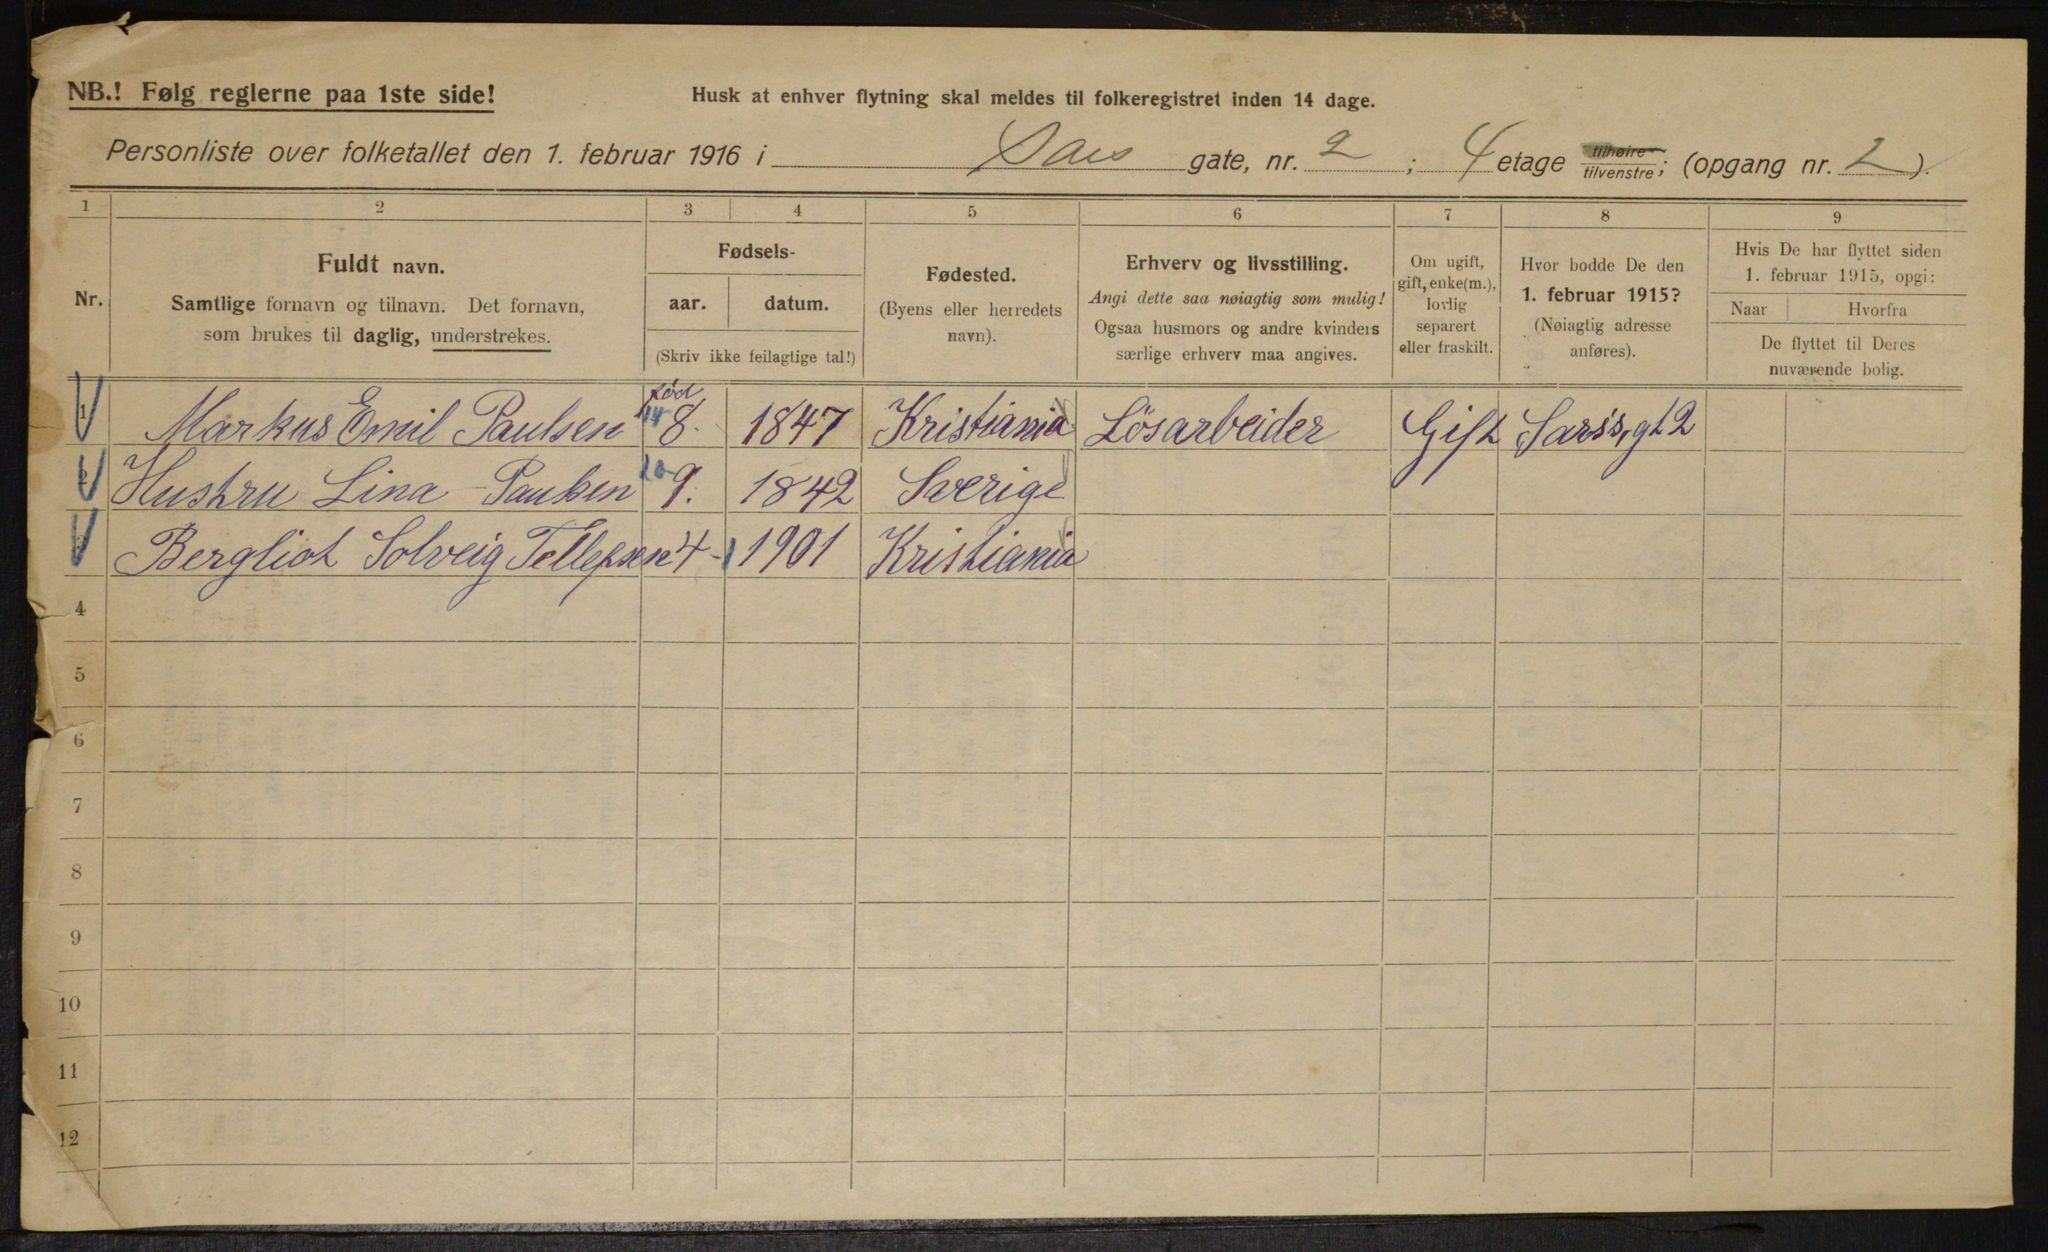 NB.! Følg reglerne paa 1ste side!
Husk at enhver flytning skal meldes til folkeregistret inden 14 dage.
Personliste over folketallet den 1. februar 1916 i Sars gate, nr. 2; 4 etage tilhøire/tilvenstre; (opgang nr. 2).
1 2 3 4 5 6 7 8 9
Nr.
Fuldt navn.
Samtlige fornavn og tilnavn. Det fornavn,
som brukes til daglig, understrekes.
Fødsels-
aar. datum.
(Skriv ikke feilagtige tal!)
Fødested.
(Byens eller herredets
navn).
Erhverv og livsstilling.
Angi dette saa nøiagtig som mulig!
Ogsaa husmors og andre kvinders
særlige erhverv maa angives.
Om ugift,
gift, enke(m.),
lovlig
separert
eller fraskilt.
Hvor bodde De den
1. februar 1915?
(Nøiagtig adresse
anføres).
Hvis De har flyttet siden
1. februar 1915, opgi:
Naar Hvorfra
De flyttet til Deres
nuværende bolig.
fød
1 Markus Emil Paulsen 14 8. 1847 Kristiania Lösarbeider Gift Sarss, gt 2
2 Hustru Lina Paulsen 9. 1842 Sverige
3 Bergliot Solveig Tellefsen 4 - 1901 Kristiania
4
5
6
7
8
9
10
11
12